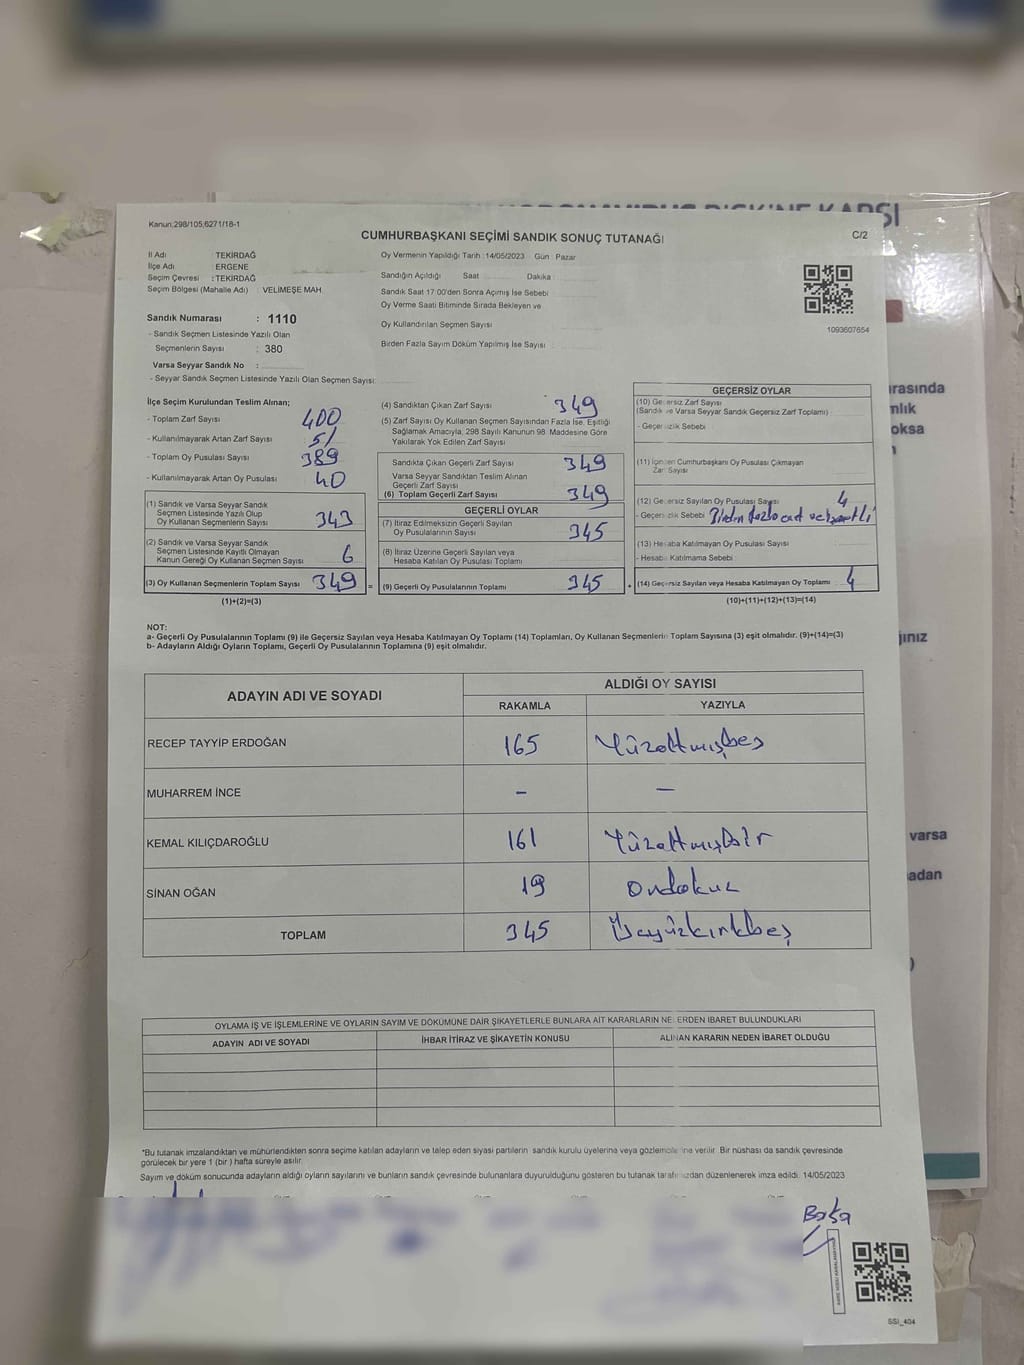 Kanun;298/105,6271/18-1
CUMHURBAŞKANI SEÇİMİ SANDIK SONUÇ TUTANAĞI
C/2
İl Adı : TEKİRDAĞ
İlçe Adı : ERGENE
Seçim Çevresi : TEKİRDAĞ
Seçim Bölgesi (Mahalle Adı) : VELİMEŞE MAH.
Sandık Numarası : 1110
- Sandık Seçmen Listesinde Yazılı Olan
Seçmenlerin Sayısı : 380
Varsa Seyyar Sandık No :
- Seyyar Sandık Seçmen Listesinde Yazılı Olan Seçmen Sayısı:
Oy Vermenin Yapıldığı Tarih : 14/05/2023 Gün : Pazar
Sandığın Açıldığı Saat Dakika :
Sandık Saat 17:00'den Sonra Açımış İse Sebebi
Oy Verme Saati Bitiminde Sırada Bekleyen ve
Oy Kullandırılan Seçmen Sayısı
Birden Fazla Sayım Döküm Yapılmış İse Sayısı :
1093607654
İlçe Seçim Kurulundan Teslim Alınan;
- Toplam Zarf Sayısı 400
- Kullanılmayarak Artan Zarf Sayısı 51
- Toplam Oy Pusulası Sayısı 389
- Kullanılmayarak Artan Oy Pusulası 40
(1) Sandık ve Varsa Seyyar Sandık
Seçmen Listesinde Yazılı Olup
Oy Kullanan Seçmenlerin Sayısı 343
(2) Sandık ve Varsa Seyyar Sandık
Seçmen Listesinde Kayıtlı Olmayan
Kanun Gereği Oy Kullanan Seçmen Sayısı 6
(3) Oy Kullanan Seçmenlerin Toplam Sayısı 349 =
(1)+(2)=(3)
(4) Sandıktan Çıkan Zarf Sayısı 349
(5) Zarf Sayısı Oy Kullanan Seçmen Sayısından Fazla İse, Eşitliği
Sağlamak Amacıyla, 298 Sayılı Kanunun 98. Maddesine Göre
Yakılarak Yok Edilen Zarf Sayısı
Sandıkta Çıkan Geçerli Zarf Sayısı 349
Varsa Seyyar Sandıktan Teslim Alınan
Geçerli Zarf Sayısı
(6) Toplam Geçerli Zarf Sayısı 349
GEÇERLİ OYLAR
(7) İtiraz Edilmeksizin Geçerli Sayılan
Oy Pusulalarının Sayısı 345
(8) İtiraz Üzerine Geçerli Sayılan veya
Hesaba Katılan Oy Pusulası Toplamı
(9) Geçerli Oy Pusulalarının Toplamı 345 +
GEÇERSİZ OYLAR
(10) Geçersiz Zarf Sayısı
(Sandık ve Varsa Seyyar Sandık Geçersiz Zarf Toplamı)
- Geçersizlik Sebebi
(11) İçinden Cumhurbaşkanı Oy Pusulası Çıkmayan
Zarf Sayısı
(12) Geçersiz Sayılan Oy Pusulası Sayısı 4
- Geçersizlik Sebebi Birden fazla
(13) Hesaba Katılmayan Oy Pusulası Sayısı
- Hesaba Katılmama Sebebi
(14) Geçersiz Sayılan veya Hesaba Katılmayan Oy Toplamı 4
(10)+(11)+(12)+(13)=(14)
NOT:
a- Geçerli Oy Pusulalarının Toplamı (9) ile Geçersiz Sayılan veya Hesaba Katılmayan Oy Toplamı (14) Toplamları, Oy Kullanan Seçmenlerin Toplam Sayısına (3) eşit olmalıdır. (9)+(14)=(3)
b- Adayların Aldığı Oyların Toplamı, Geçerli Oy Pusulalarının Toplamına (9) eşit olmalıdır.
ADAYIN ADI VE SOYADI
ALDIĞI OY SAYISI
RAKAMLA YAZIYLA
RECEP TAYYİP ERDOĞAN 165 Yüzaltmışbeş
MUHARREM İNCE - -
KEMAL KILIÇDAROĞLU 161 Yüzaltmışbir
SİNAN OĞAN 19 Ondokuz
TOPLAM 345 Üçyüzkırkbeş
OYLAMA İŞ VE İŞLEMLERİNE VE OYLARIN SAYIM VE DÖKÜMÜNE DAİR ŞİKAYETLERLE BUNLARA AİT KARARLARIN NELERDEN İBARET BULUNDUKLARI
ADAYIN ADI VE SOYADI İHBAR İTİRAZ VE ŞİKAYETİN KONUSU ALINAN KARARIN NEDEN İBARET OLDUĞU
*Bu tutanak imzalandıktan ve mühürlendikten sonra seçime katılan adayların ve talep eden siyasi partilerin sandık kurulu üyelerine veya gözlemcilerine verilir. Bir nüshası da sandık çevresinde
görülecek bir yere 1 (bir ) hafta süreyle asılır.
Sayım ve döküm sonucunda adayların aldığı oyların sayılarını ve bunların sandık çevresinde bulunanlara duyurulduğunu gösteren bu tutanak tarafımızdan düzenlenerek imza edildi. 14/05/2023
SSİ_404
KARŞI
rasında
mlık
oksa
ğınız
varsa
adan